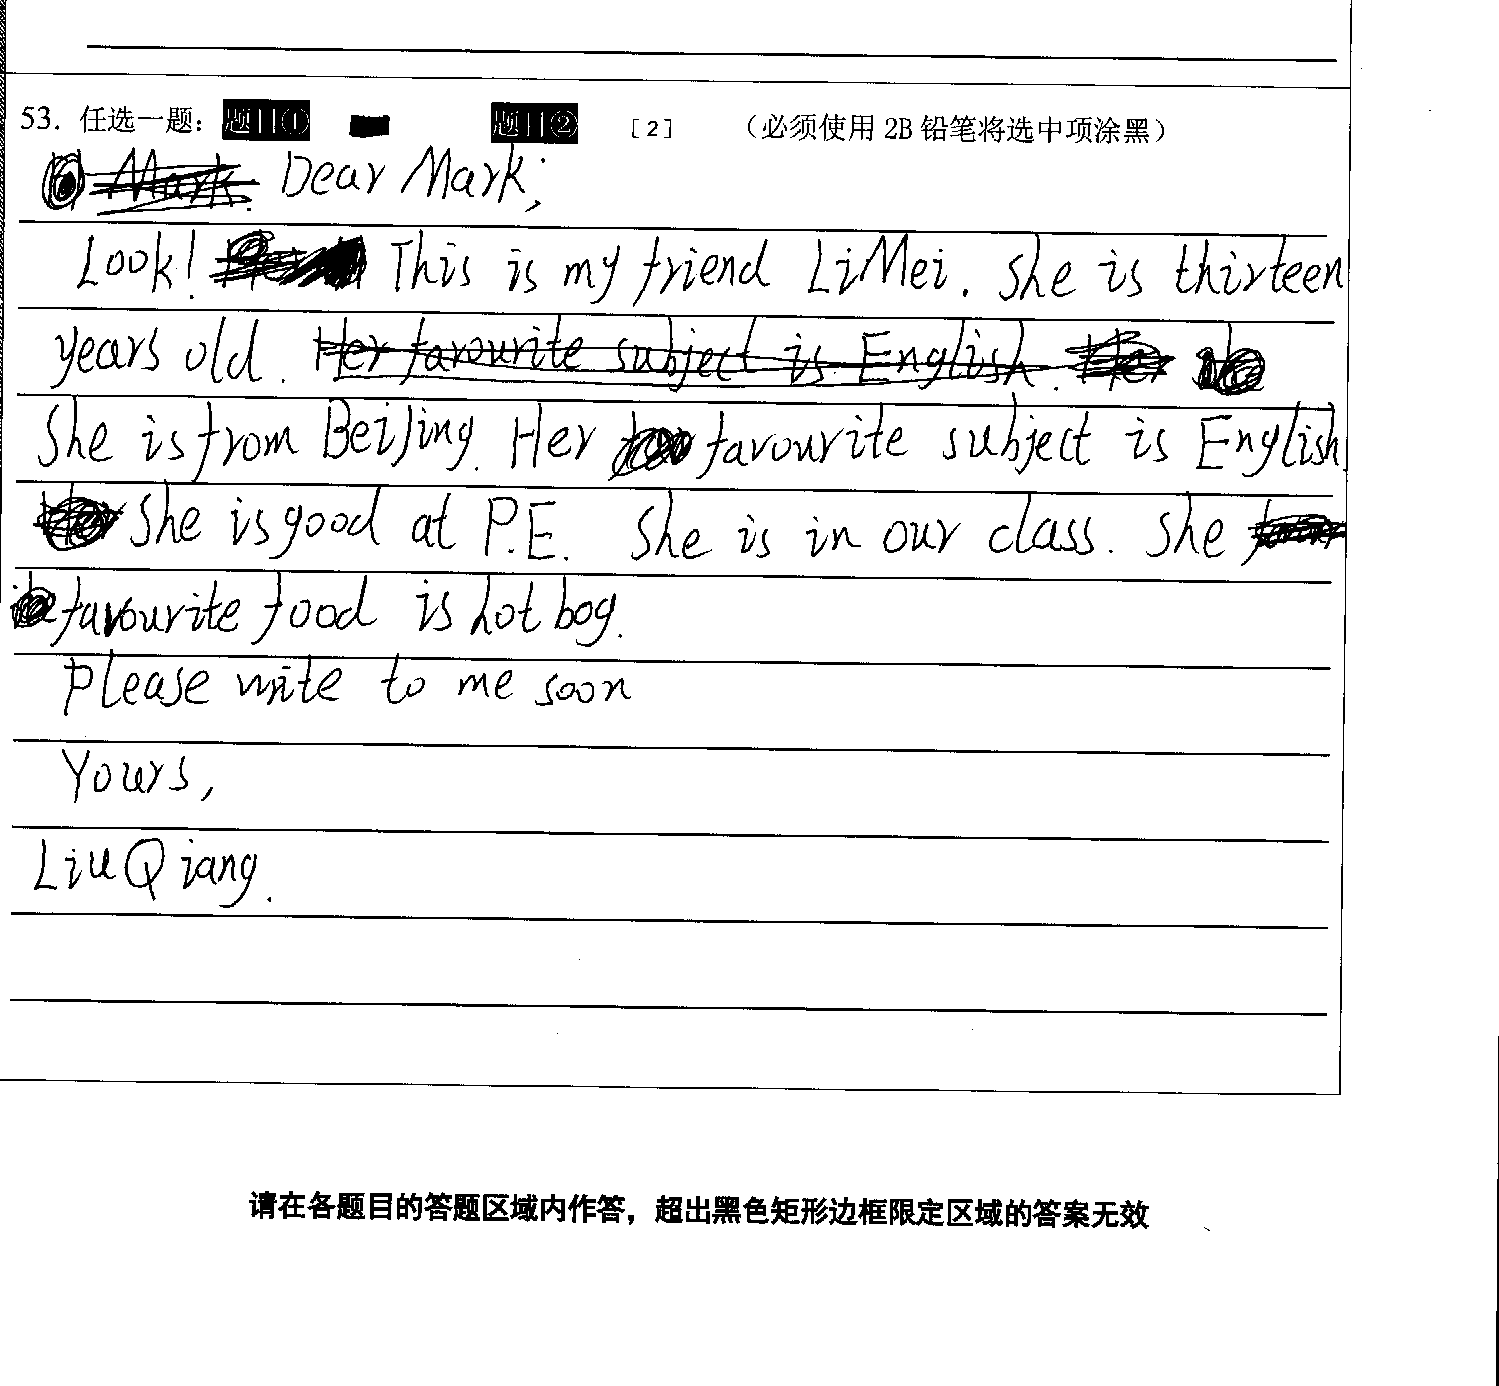 53. 任选一题： 题目① 题目② [2] （必须使用 2B 铅笔将选中项涂黑）
Dear Mark;
Look! This is my friend LiMei. She is thirteen
years old. Her favourite subject is English.
She is from BeiJing. Her favourite subject is English.
She is good at P.E. She is in our class. She
favourite food is hot bog.
Please write to me soon
Yours,
LiuQiang.
请在各题目的答题区域内作答，超出黑色矩形边框限定区域的答案无效